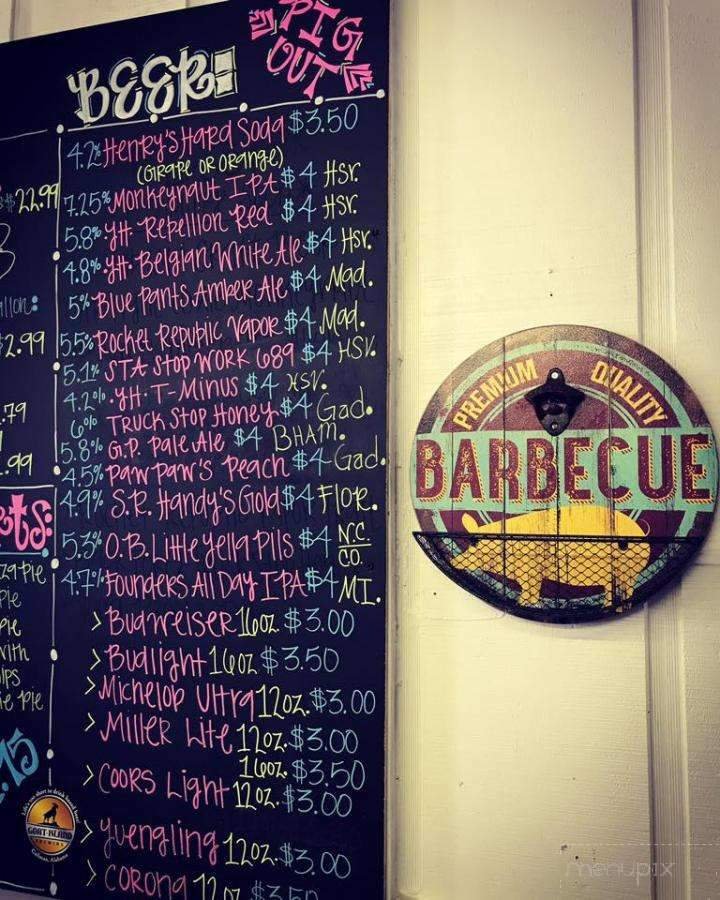 PIG
OUT
BEER:
4.2% Henry's Hard Soda $3.50
(Grape or Orange)
7.25% Monkeynaut IPA $4 HSV.
5.8% YH. Rebellion Red $4 HSV.
4.8% YH. Belgian White Ale $4 HSV.
5% Blue Pants Amber Ale $4 Mad.
5.5% Rocket Republic Vapor $4 Mad.
5.1% STA Stop Work 689 $4 HSV.
4.2% YH. T-Minus $4 HSV.
6% Truck Stop Honey $4 Gad.
5.8% G.P. Pale Ale $4 BHAM.
4.5% PawPaw's Peach $4 Gad.
4.9% S.R. Handy's Gold $4 Flor.
5.3% O.B. Little Yella Pils $4 N.C.
CO.
4.7% Founders All Day IPA $4 MI.
> Budweiser 16oz. $3.00
> Budlight 16oz. $3.50
> Michelob Ultra 12oz. $3.00
> Miller Lite 12oz. $3.00
16oz. $3.50
> Coors Light 12oz. $3.00
> Yuengling 12oz. $3.00
> Corona 12oz. $3.50
$22.99
2.99
.79
.99
Pie
Pie
GOAT ISLAND
BREWING
Cullman, Alabama
PREMIUM QUALITY
BARBECUE
menupix